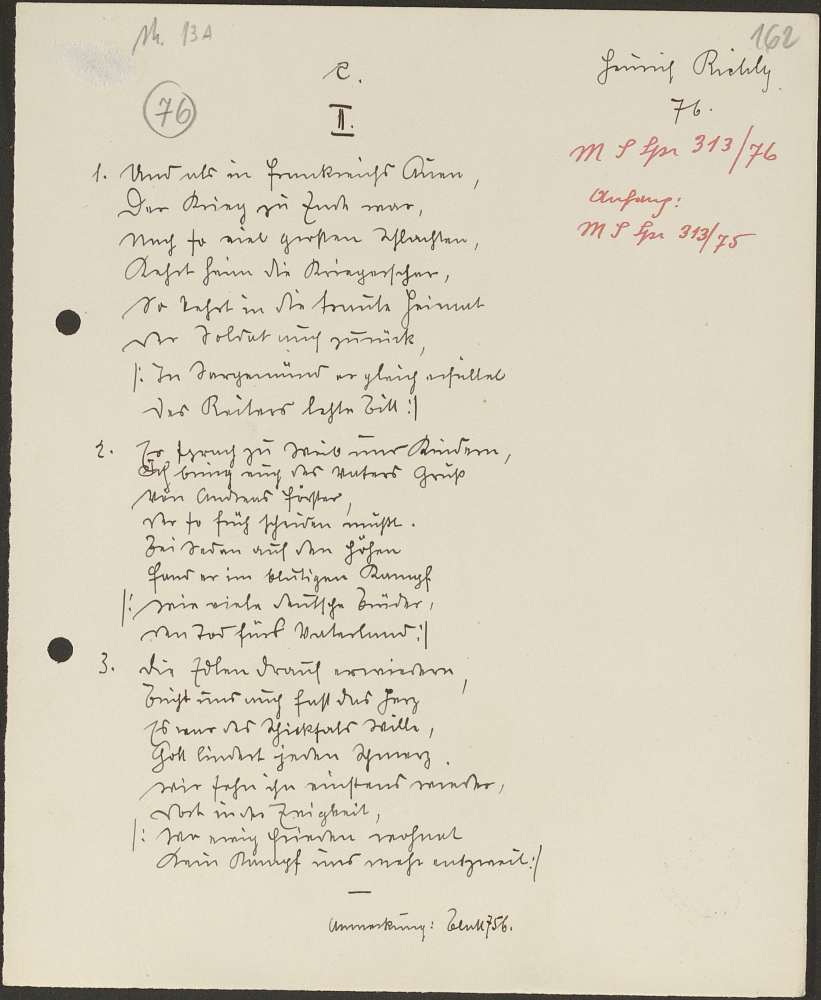 162
Nr. 13A
c.
Heinrich
76
II.
76.
M S Spr 313/76
Anfang:
M S Spr 313/75
1. Und als in Frankreichs Auen,
Der Krieg zu Ende war,
Nach so viel großen Schlachten,
Kehrt heim die Kriegerschar,
So kehrt in die traute Heimat
Der Soldat auch zurück,
|: In Sargemünd er gleich erfüllet
Des Reiters letzte Bitt :|
2. Er sprach zu Weib und Kindern,
Ich bring euch des Vaters Gruß
Von Andreas Förster,
Der so früh scheiden mußt.
Bei Sedan auf den Höhen
Fand er im blutigen Kampf
|: Wie viele deutsche Brüder,
Den Tod fürs Vaterland :|
3. Die Edlen drauf erwiedern,
Bricht uns auch fast das Herz
Es war des Schicksals Wille,
Gott lindert jeden Schmerz.
Wir sehn ihn einstens wieder,
Dort in der Ewigkeit,
|: Wo ewig Frieden wohnet
Kein Kampf uns mehr entzweit :|
Anmerkung: Blatt 75b.